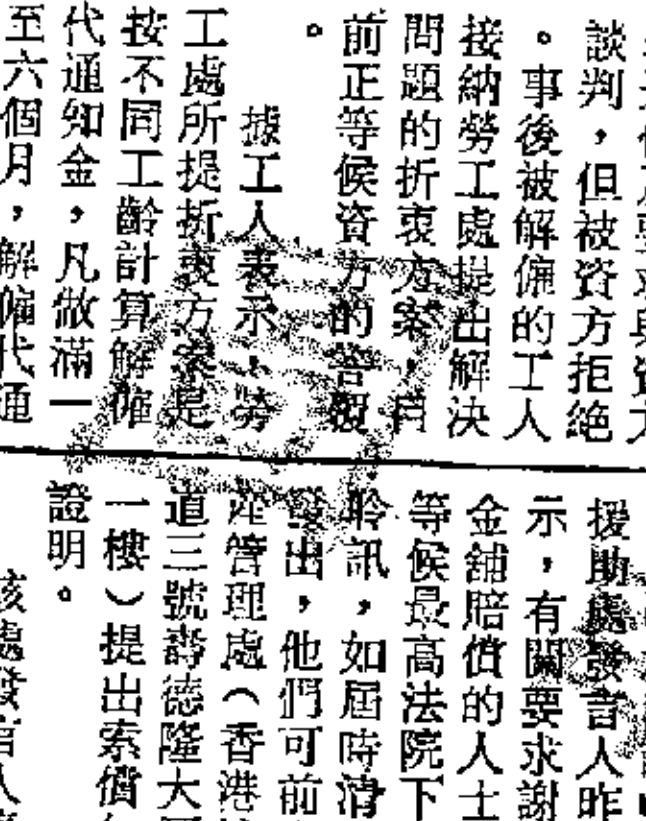 要求與資方
談判，但被資方拒絕
。事後被解僱的工人
接納勞工處提出解決
問題的折衷方案，目
前正等候資方的答覆
。
據工人表示，勞
工處所提折衷方案是
按不同工齡計算解僱
代通知金，凡做滿一
至六個月，解僱代通
援助處發言人昨
示，有關要求謝
金舖賠償的人士
等候最高法院下
聆訊，如屆時清
發出，他們可前
產管理處（香港
道三號壽德隆大
一樓）提出索償
證明。
該處發言人